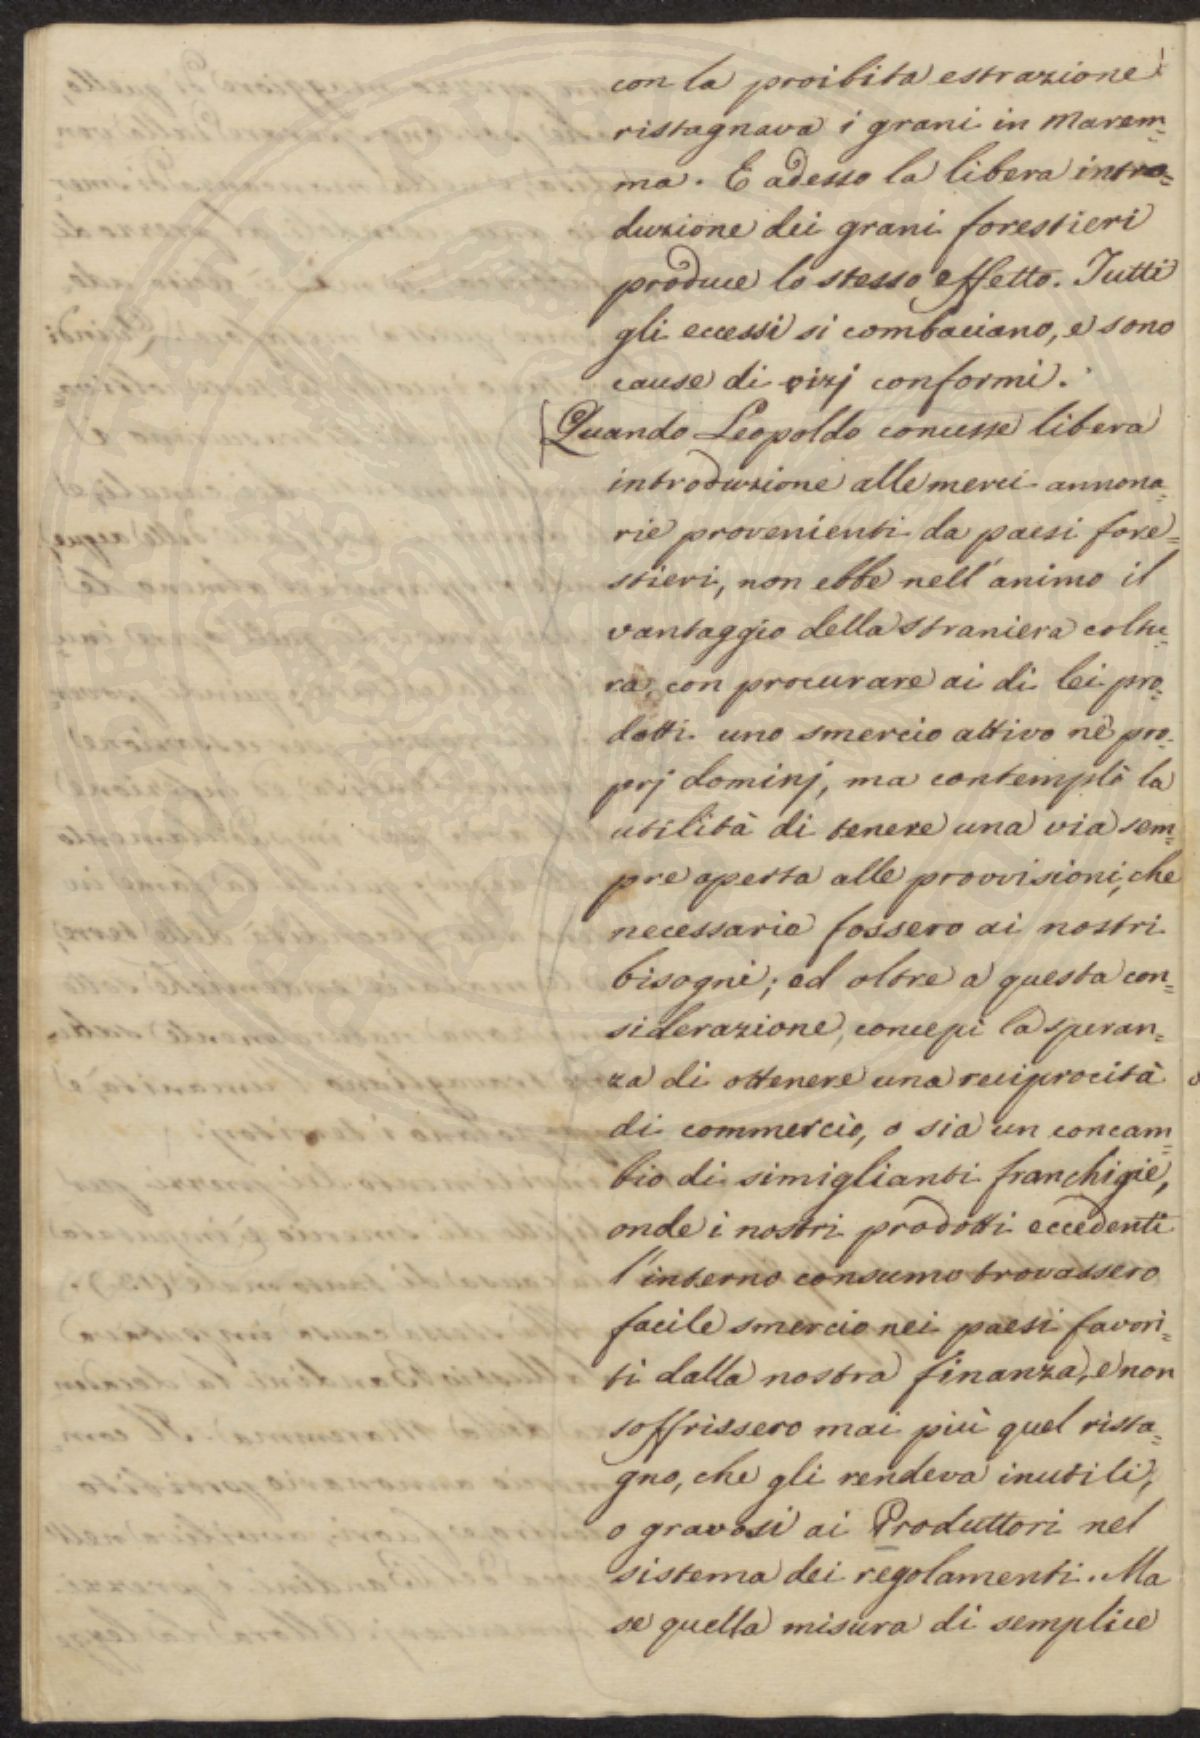 con la proibita estrazione
ristagnava i grani in Marem=
ma. E adesso la libera intro=
duzione dei grani forestieri
produce lo stesso effetto. Tutti
gli eccessi si combaciano, e sono
cause di vizj conformi.
[Quando Leopoldo concesse libera
introduzione alle merci annona=
rie provenienti da paesi fore=
stieri, non ebbe nell'animo il
vantaggio della straniera coltu=
ra, con procurare ai di lei pro=
dotti uno smercio attivo nè pro=
prj dominj, ma contemplò la
utilità di tenere una via sem=
pre aperta alle provvisioni, che
necessarie fossero ai nostri
bisogni; ed oltre a questa con=
siderazione, concepì la speran=
za di ottenere una reciprocità
di commercio, o sia un concam=
bio di simiglianti franchigie,
onde i nostri prodotti eccedenti
l'interno consumo trovassero
facile smercio nei paesi favori=
ti dalla nostra finanza, e non
soffrissero mai più quel rista=
gno, che gli rendeva inutili,
o gravosi ai Produttori nel
sistema dei regolamenti. Ma
se quella misura di semplice